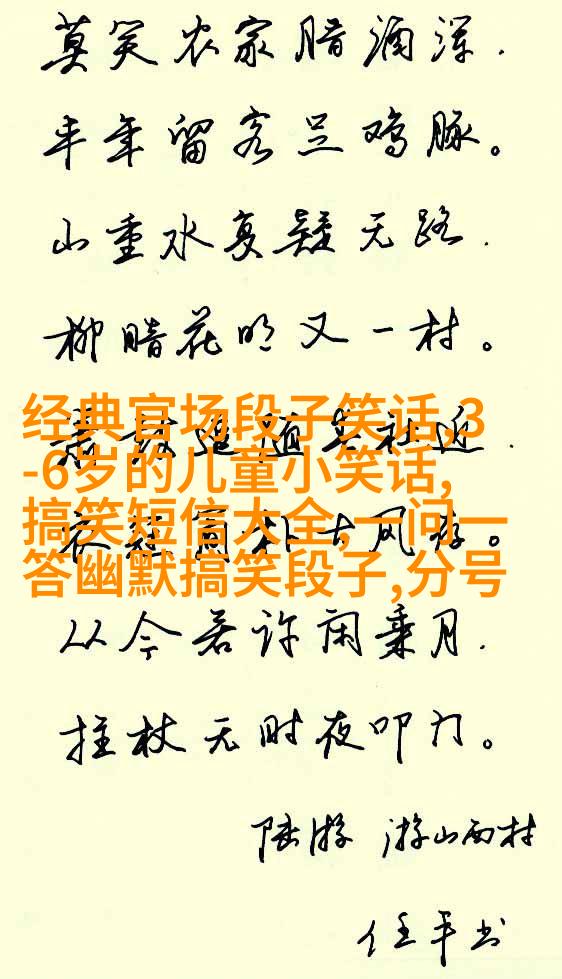 莫笑农家腊酒浑.
丰年留客足鸡豚。
山重水复疑无路.
柳暗花明又一村。
追随春社近.
经典官场段子笑话,3
-6岁的儿童小笑话,
搞笑短信大全,一问一
答幽默搞笑段子,分号
古风存。
从今若许闲乘月.
拄杖无时夜叩门。
陆游 游山西村
任平书